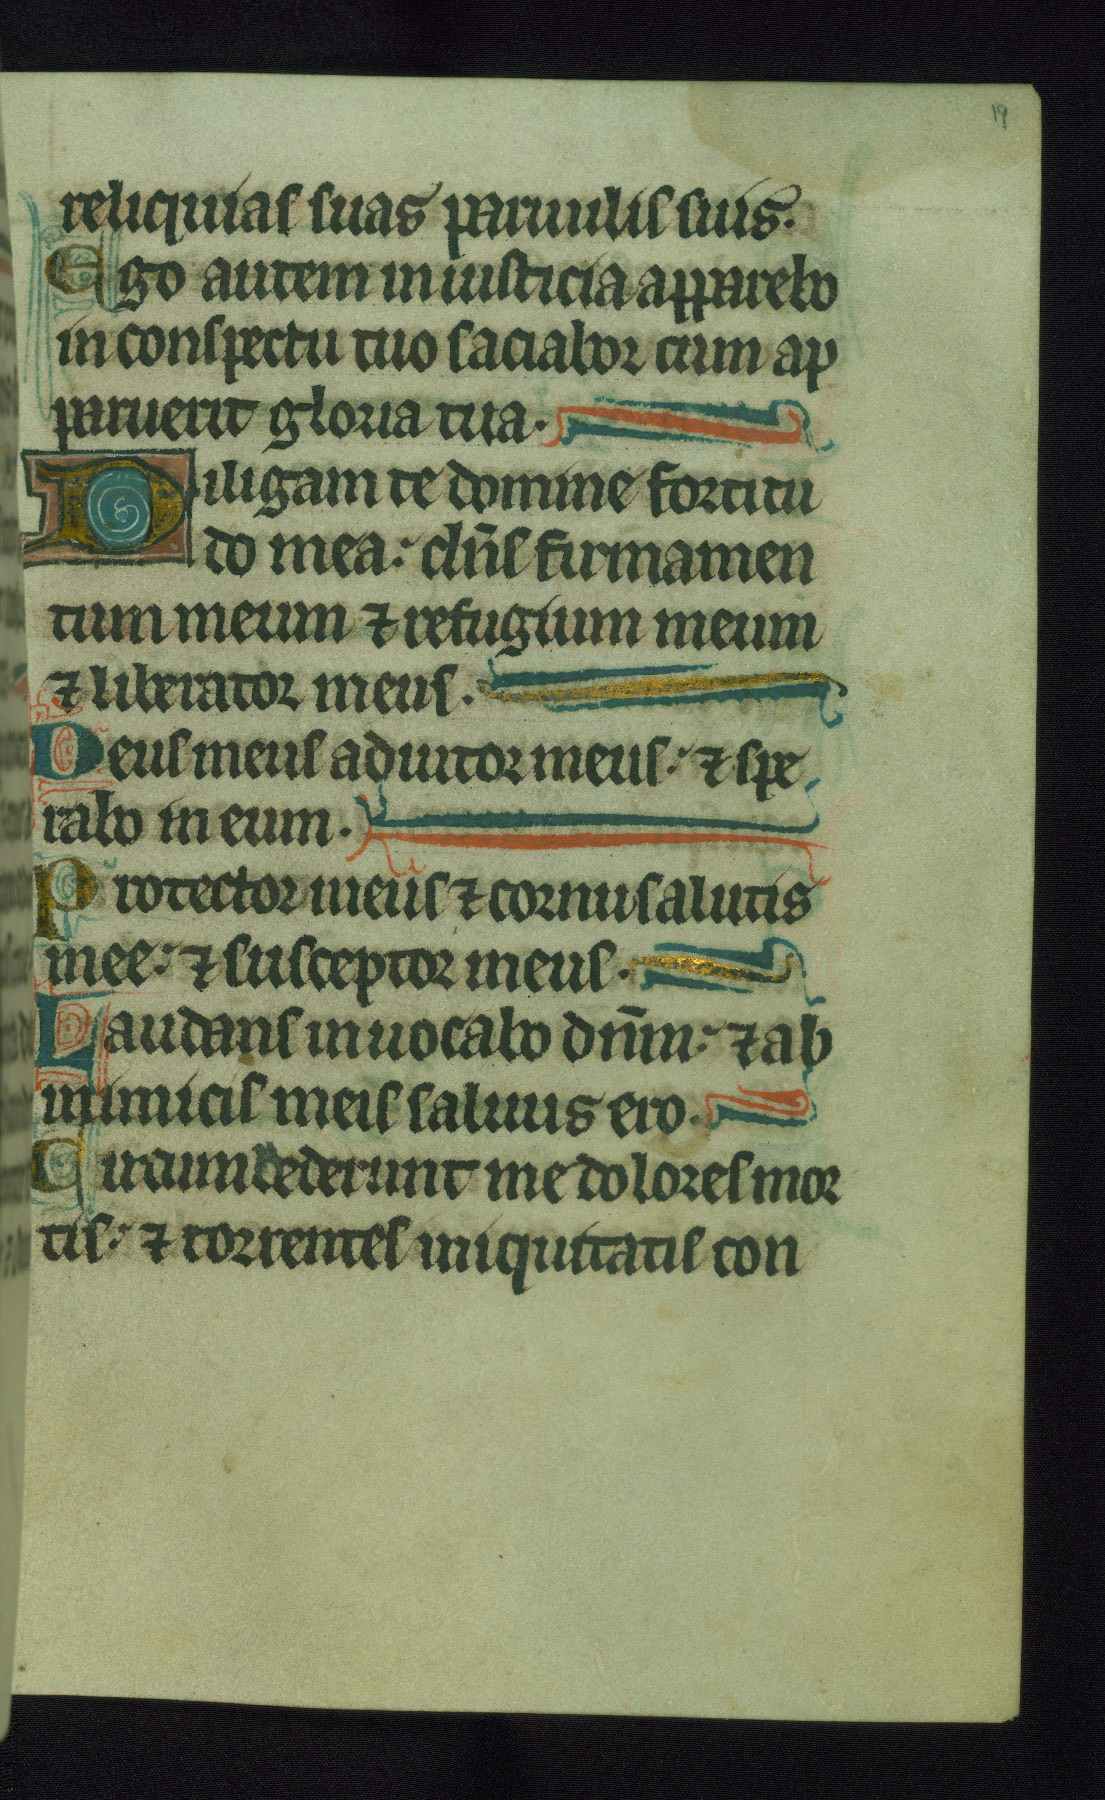 19
reliquias suas paruulis suis.
Ego autem in iusticia apparebo
in conspectu tuo saciabor cum ap
paruerit gloria tua.
Diligam te domine fortitu
do mea: dn̄s firmamen
tum meum ⁊ refugium meum
⁊ liberator meus.
Deus meus adiutor meus: ⁊ spe
rabo in eum.
Protector meus ⁊ cornu salutis
mee: ⁊ susceptor meus.
Laudans inuocabo dn̄m: ⁊ ab
inimicis meis saluus ero.
Circumdederunt me dolores mor
tis: ⁊ torrentes iniquitatis con